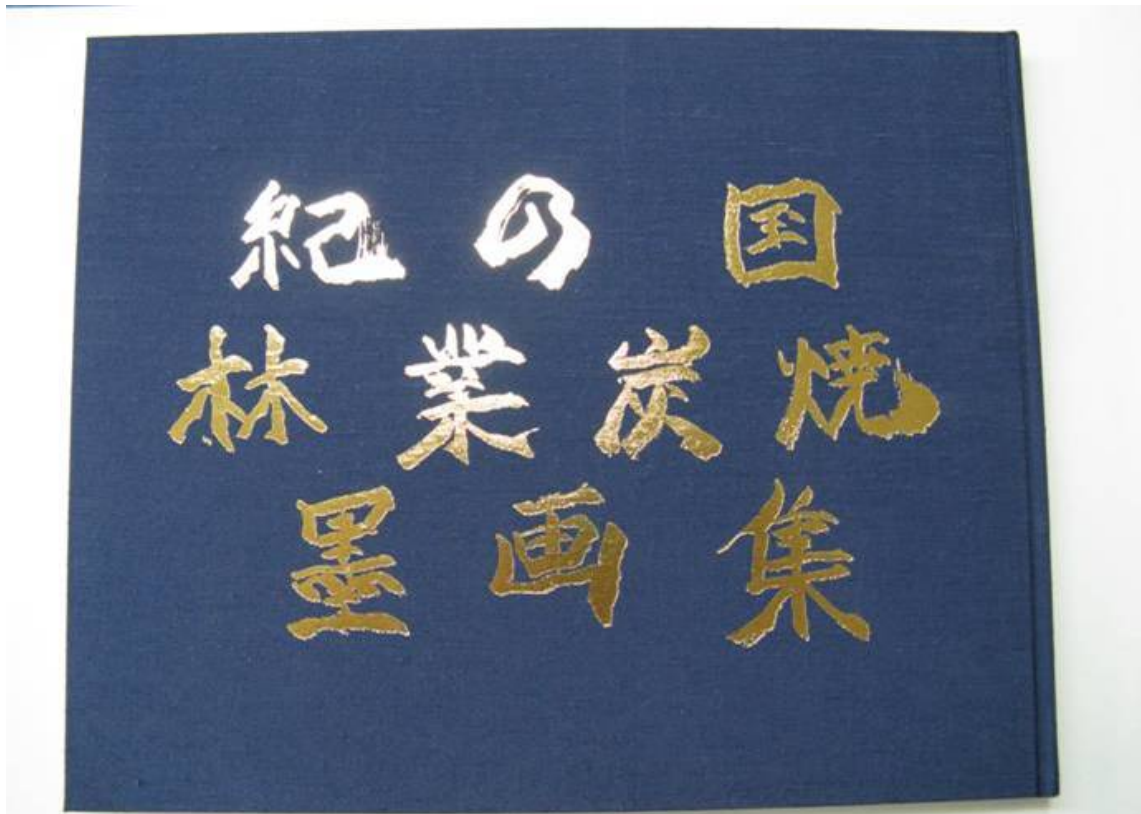 紀の国
林業炭焼
墨画集